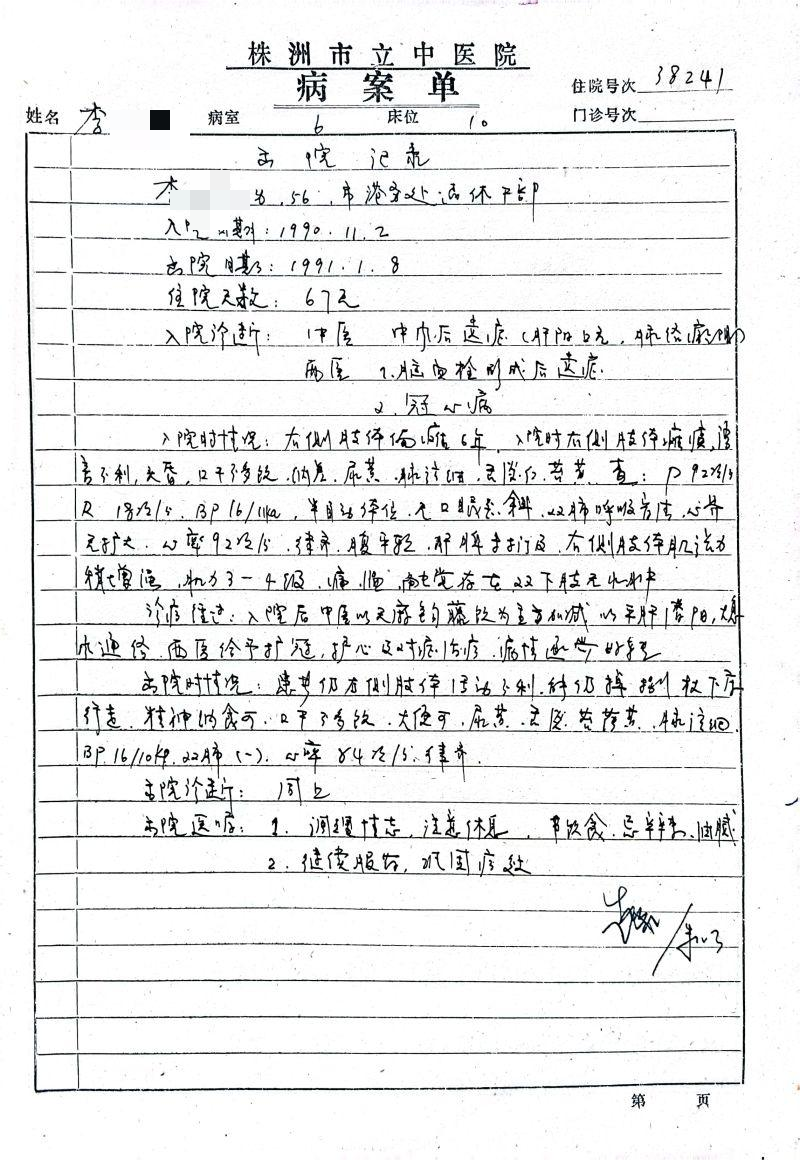 株洲市立中医院
病案单
住院号次 38241
姓名 李 病室 6 床位 10 门诊号次
出院记录
李 男，56，市港务处退休干部
入院日期：1990.11.2
出院日期：1991.1.8
住院天数：67天
入院诊断：中医 中风后遗症（肝阳上亢，脉络瘀阻）
西医 1.脑血栓形成后遗症
2.冠心病
入院时情况：右侧肢体偏瘫6年，入院时右侧肢体瘫痪，语
言不利，头昏，口干多饮，纳差，尿黄，脉弦细，舌淡红苔黄，查：P 92次/分
R 18次/分，BP 16/11Kpa，半自动体位，无口眼歪斜，双肺呼吸音清，心界
无扩大，心率92次/分，律齐，腹平软，肝脾未扪及，右侧肢体肌张力
稍增强，肌力3-4级，痛、温、触觉存在，双下肢无水肿
诊疗经过：入院后中医以天麻钩藤饮为主方加减以平肝潜阳，熄
风通络，西医给予扩冠，护心及对症治疗，病情逐步好转
出院时情况：患者仍右侧肢体活动不利，能扶杖下床
行走，精神纳食可，口干多饮，大便可，尿黄，舌淡苔黄，脉弦细
BP 16/10KPa，双肺（-），心率84次/分，律齐.
出院诊断：同上
出院医嘱：1. 调理情志，注意休息，节饮食，忌辛辣、油腻
2. 继续服药，巩固疗效
第 页